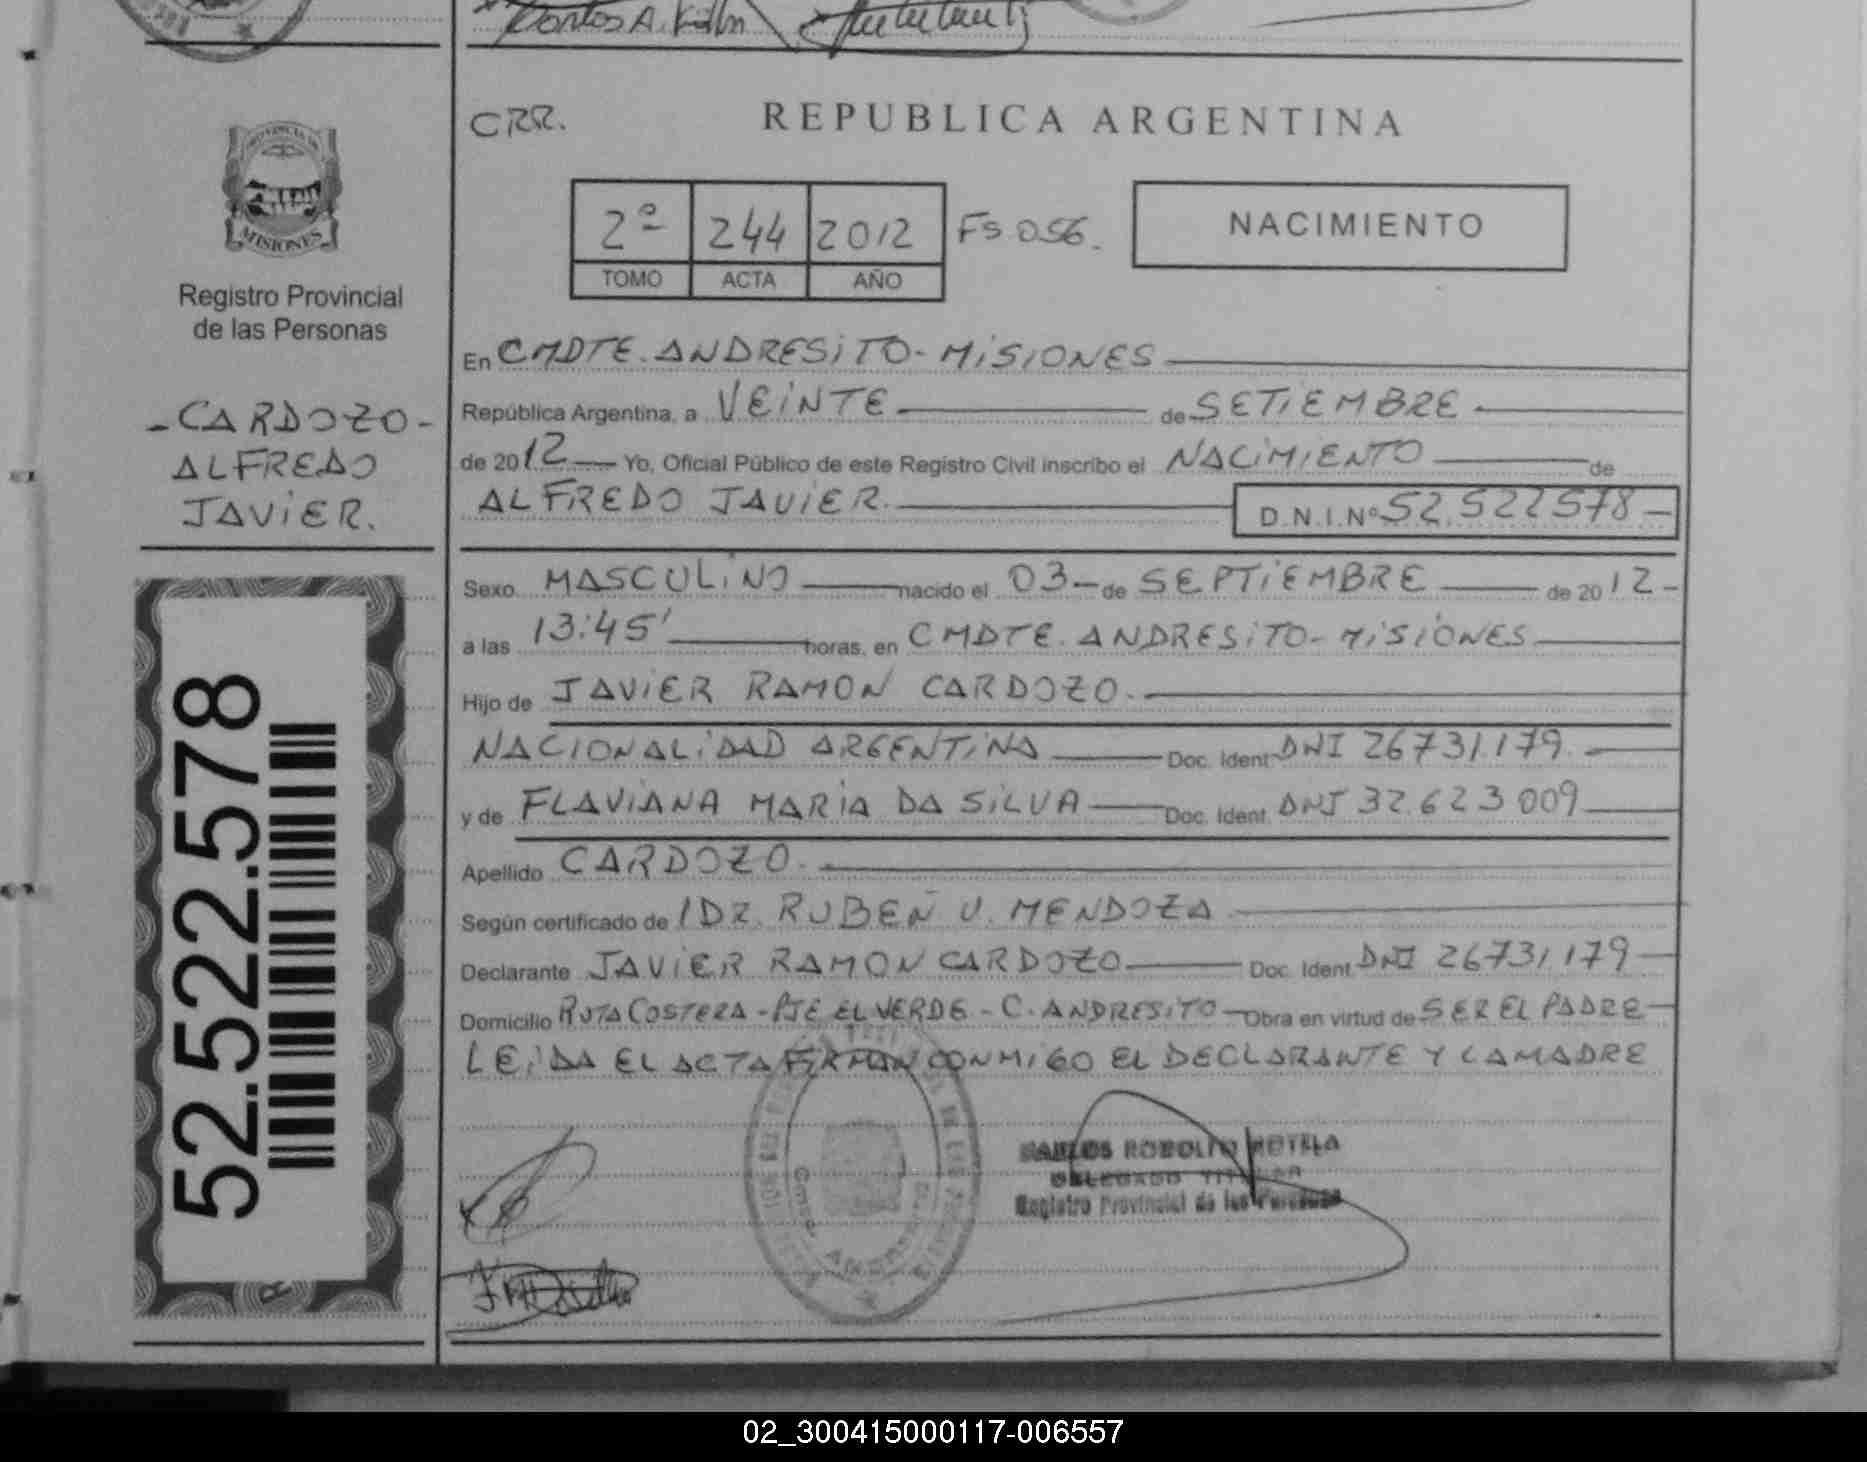 Carlos A. Kolln
CRR.
REPUBLICA ARGENTINA
PROVINCIA DE
MISIONES
Registro Provincial
de las Personas
2º 244 2012 Fs 056.
TOMO ACTA AÑO
NACIMIENTO
-CARDOZO-
ALFREDO
JAVIER.
52.522.578
En CMDTE. ANDRESiTO - MiSIONES
República Argentina, a VEiNTE de SETiEMBRE
de 2012 Yo, Oficial Público de este Registro Civil inscribo el NACIMIENTO de
ALFREDO JAViER. D.N.I.Nº 52.522578 -
Sexo MASCULiNO nacido el 03 - de SEPTiEMBRE de 2012 -
a las 13:45' horas, en CMDTE. ANDRESiTO - MiSiONES
Hijo de JAViER RAMON CARDOZO.
NACIONALiDAD ARGENTiNA Doc. Ident DNI 26731.179.
y de FLAViANA MARiA DA SiLVA Doc. Ident. DNI 32.623.009
Apellido CARDOZO.
Según certificado de IDZ. RUBEN U. MENDOZA
Declarante JAViER RAMON CARDOZO Doc. Ident. DNI 26731.179
Domicilio RUTA COSTERA - PJE EL VERDE - C. ANDRESiTO Obra en virtud de SER EL PADRE
LEiDA EL ACTA FiRMAN CONMiGO EL DECLARANTE Y LA MADRE
CARLOS RODOLFO ROTELA
DELEGADO TITULAR
Registro Provincial de las Personas
02_300415000117-006557